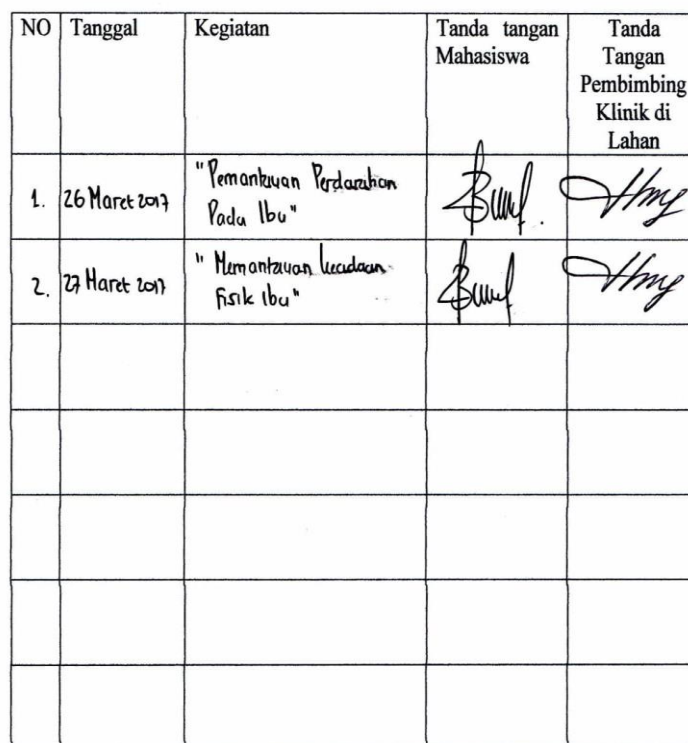 NO Tanggal Kegiatan Tanda tangan Tanda
Mahasiswa Tangan
Pembimbing
Klinik di
Lahan
1. 26 Maret 2017 "Pemantauan Perdarahan
Pada Ibu"
2. 27 Maret 2017 "Memantauan keadaan
Fisik Ibu"